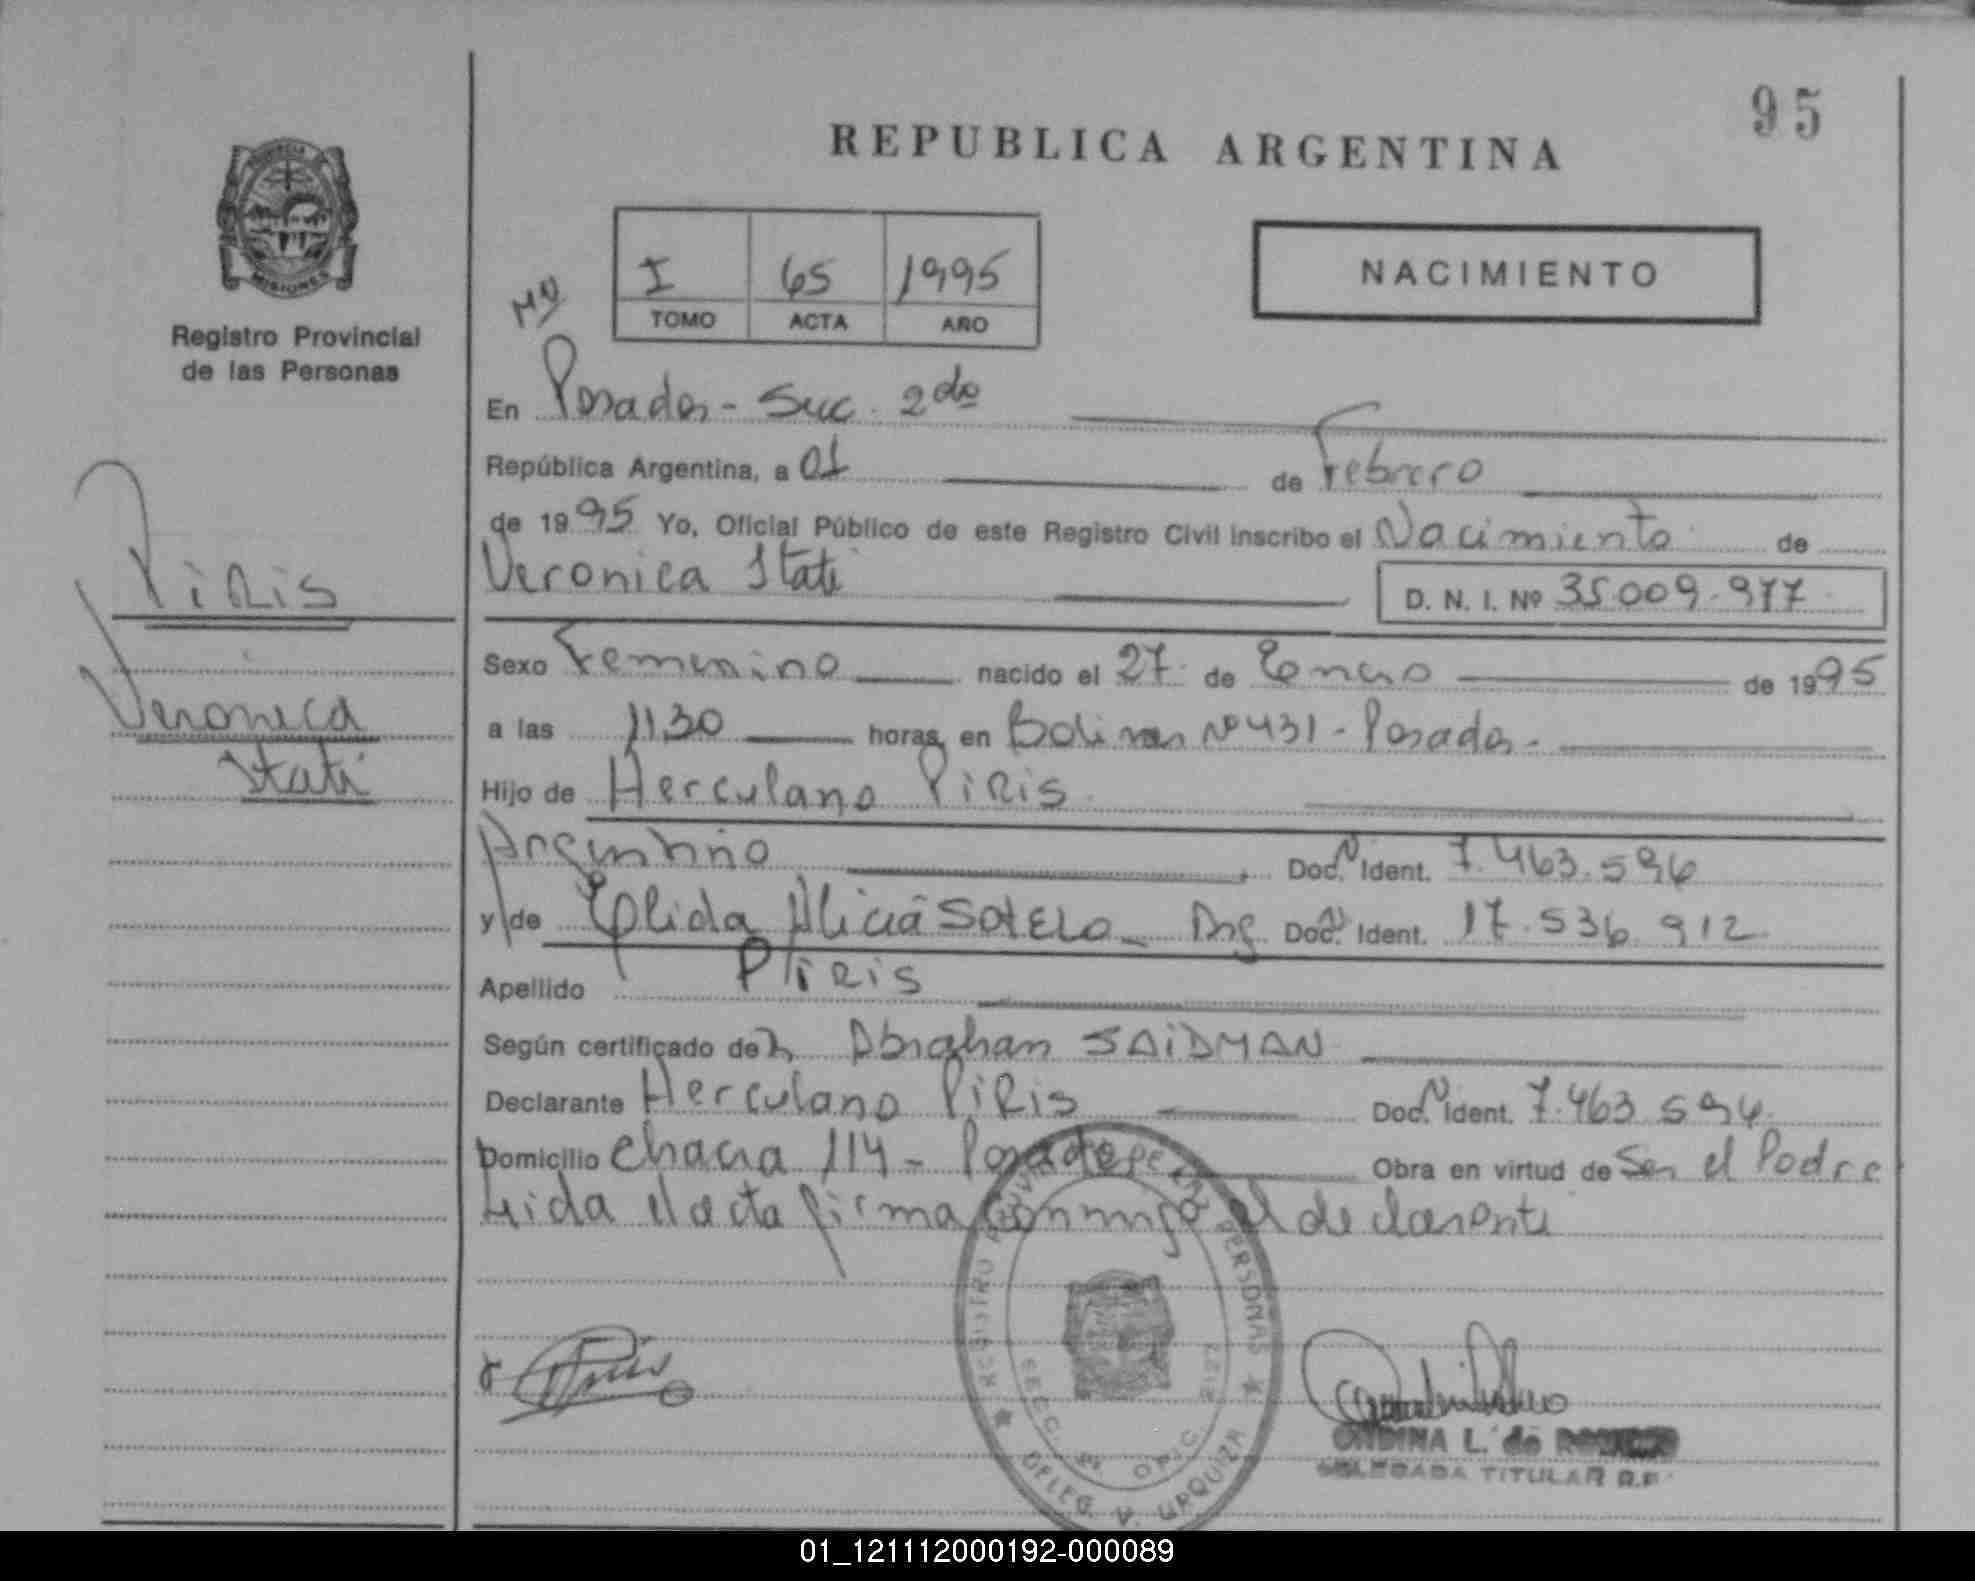 95
REPUBLICA ARGENTINA
PROVINCIA DE
MISIONES
Registro Provincial
de las Personas
I 65 1995
TOMO ACTA AÑO
NACIMIENTO
En Posadas - Suc. 2da
República Argentina, a 01 de Febrero
de 1995 Yo, Oficial Público de este Registro Civil inscribo el Nacimiento de
Veronica Itati
D. N. I. Nº 35.009.977
PiRis
Veronica
Itati
Sexo Femenino nacido el 27 de Enero de 1995
a las 11,30 horas, en Bolivar Nº 431 - Posadas -
Hijo de Herculano PiRis
Argentino Doc. N Ident. 7.463.596
y de Elida Alicia SOTELO - Arg. Doc. N Ident. 17.536.912
Apellido PiRis
Según certificado de Abrahan SAIDMAN
Declarante Herculano PiRis Doc. N Ident. 7.463.594
Domicilio Chacra 114 - Posadas Obra en virtud de Ser el Padre
Leida el acta firma conmigo el declarante
REGISTRO PROVINCIAL DE LAS PERSONAS
SECC. OFIC. 2127
DELEG. V. URQUIZA
ONDINA L. de
DELEGADA TITULAR R.P.
01_121112000192-000089